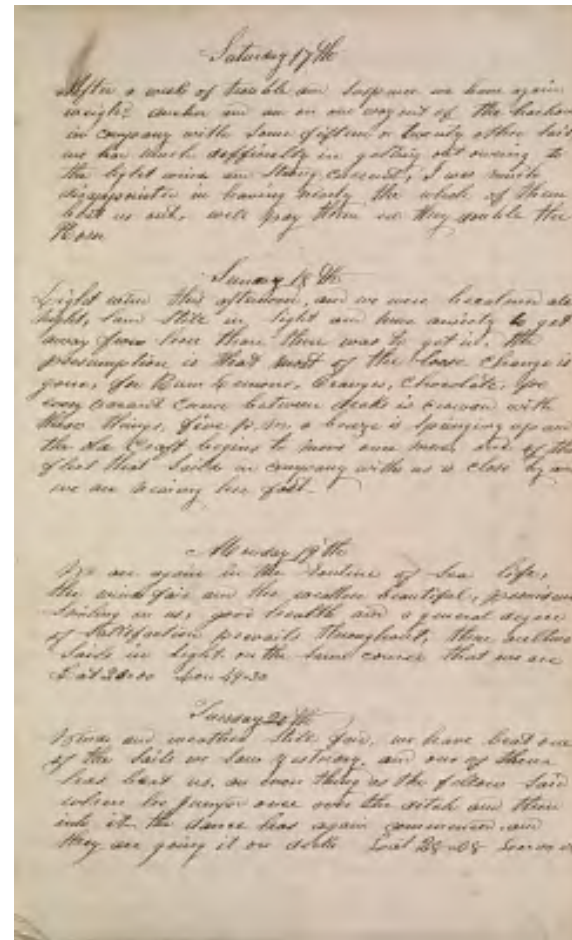 Saturday 17th
After a week of trouble and suspence we have again
weighed anchor and are on our way out of the harbor
in company with some fifteen or twenty other sail
we had much difficulty in getting out owing to
the light winds and strong current, I was much
disappointed in having nearly the whole of them
beat us out, we'll pay them as they double the
Horn
Sunday 18th
Light wind this afternoon, and we were becalmed all
night, land still in sight and more anxiety to get
away from here than there was to get in. the
presumption is that most of the loose change is
gone, for Rum Lemons, Oranges, Chocolate, &c
every vacant between decks is crowded with
these things, five p.m. a breeze is springing up and
the Sea Craft begins to move once more, one of the
fleet that sailed in company with us is close by and
we are leaving her fast.
Monday 19th
We are again in the routine of sea life,
the wind fair and the weather beautiful,
smiling on us, good health and a general degree
of satisfaction prevails throughout, three
sails in sight on the same course that we are
Lat Lon 49-30
Tuesday 20th
Winds and weather still fair, we have beat one
of the sails we saw yesterday, and one of them
has beat us, an even thing as the fellow said
when he jumped once over the ditch and then
into it the dance has again commenced and
they are going it on deck Lat 28-08